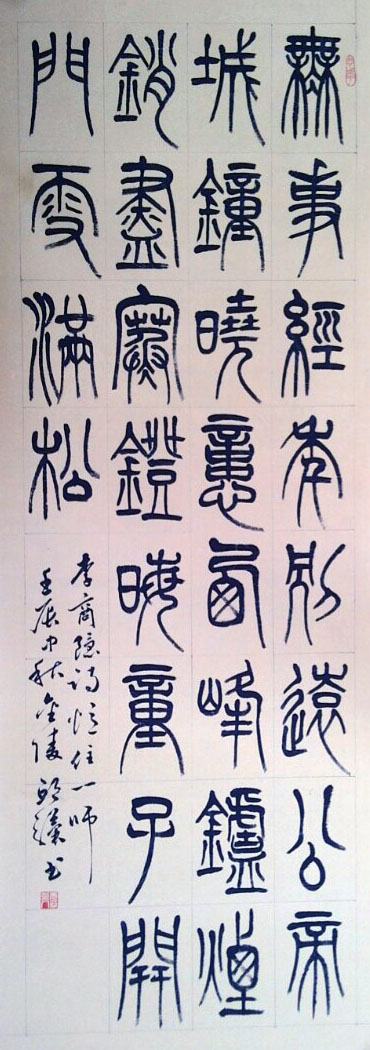 無事經年別遠公帝
城鐘曉憶西峰鑪煙
銷盡寒鐙晦童子開
門雪滿松
李商隱詩憶住一師
壬辰中秋金陵書